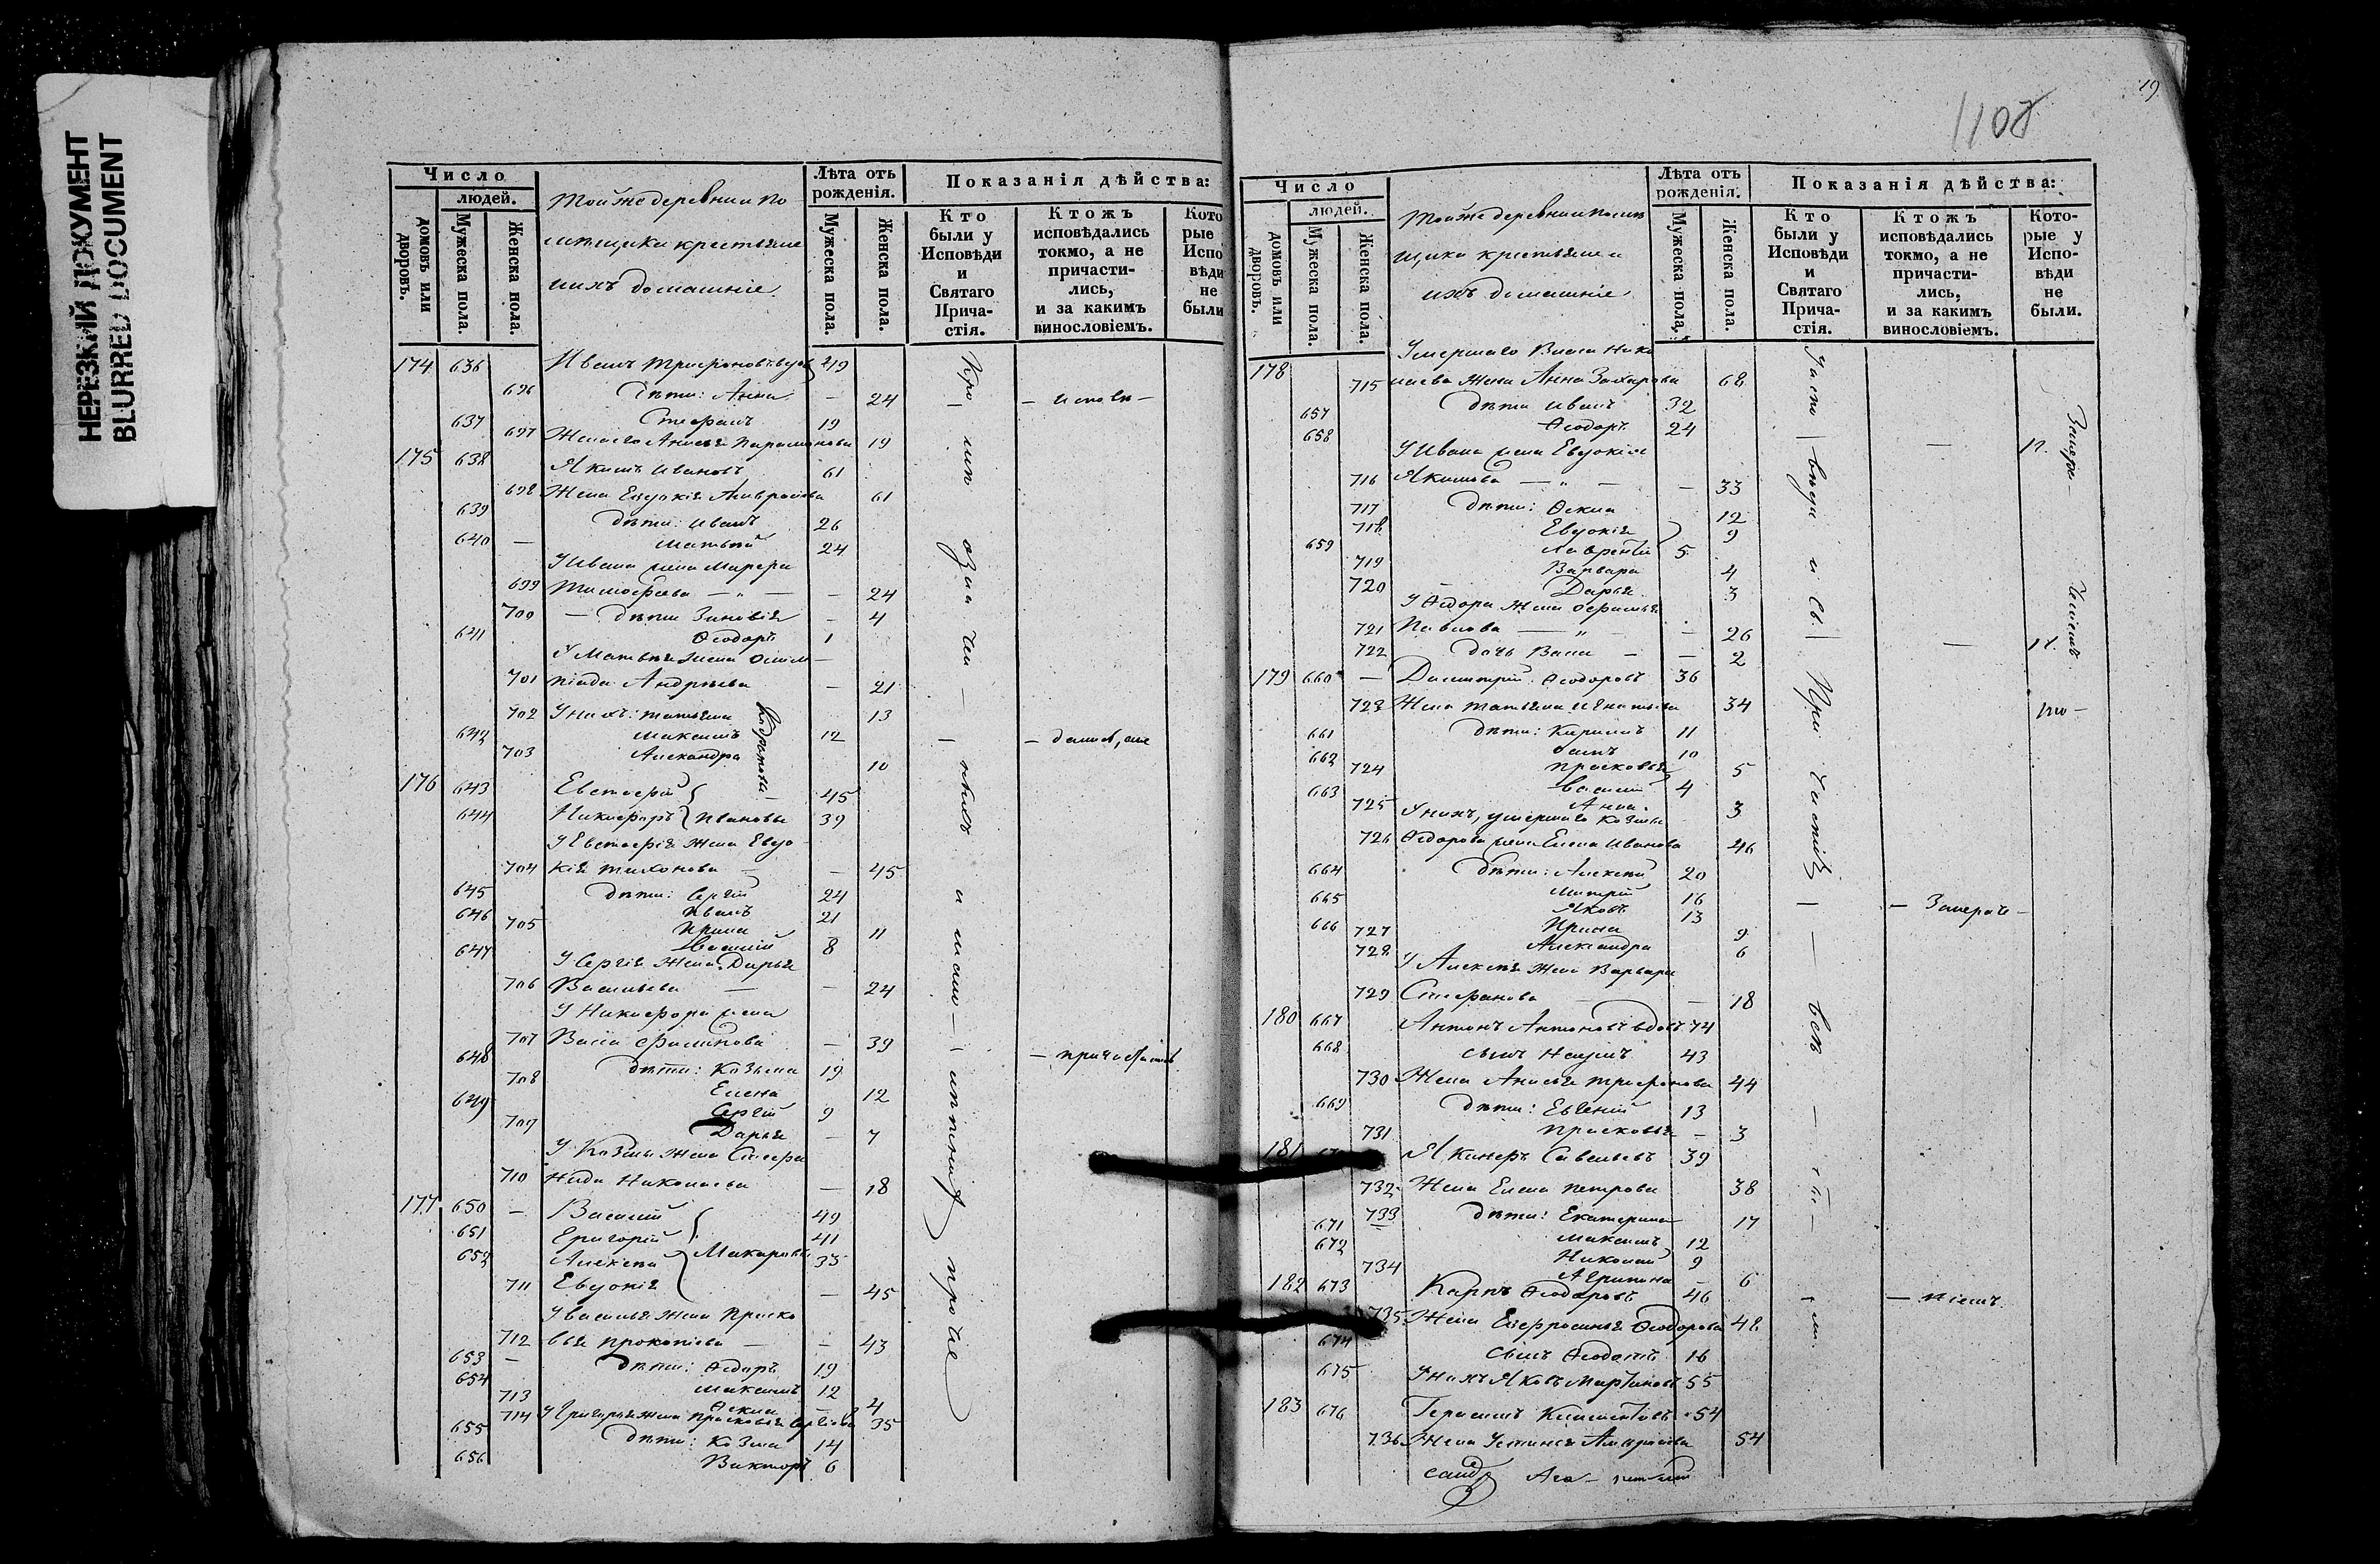 НЕРЕЗКИЙ ДОКУМЕНТ
BLURRED DOCUMENT
Число
людей.
домовъ или дворовъ.
Мужеска пола.
Женска пола.
Тойже деревни по
мѣщика крестьяне
и ихъ домашніе
Лѣта отъ рожденія.
Мужеска пола.
Женска пола.
Показанія дѣйства:
Кто были у Исповѣди и Святаго Прича-стія.
Ктожъ исповѣдались токмо, а не причасти-лись, и за какимъ винословіемъ.
Кото рые Испо вѣди не были
174 636 Иванъ Трифоновъ вдов 49
696 Дѣти: Анна — 24
637 Стефанъ 19
697 Жена его Анисья Парамонова 19
175 638 Якимъ Ивановъ 61
698 Жена Евдокія Амвросіева 61
639 Дѣти: Иванъ 26
640 — Матвѣй 24
У Ивана жена Марфа
699 Тимофеева — „ — — 24
700 — Дѣти Зиновія — 4
641 Ѳеодоръ 1
У Матвѣя жена Олим —
701 піада Андреева — 21
702 У нихъ: Татьяна 13
642 Максимъ 12
703 Александра 10
Кодратовы
176 643 Евстафій 45
644 Никифоръ Ивановы 39
У Евстафія жена Евдо
704 кія Тихонова — — 45
645 Дѣти: Сергій 24
646 Иванъ 21
705 Ирина — 11
647 Василій 8
У Сергія жена Дарья
706 Васильева — — 24
У Никифора жена
707 Васса Филипова — 39
648 Дѣти: Козьма 19
708 Елена 12
649 Сергій 9
709 Дарья — 7
У Козмы жена Стефа
710 нида Николаева — 18
177 650 — Василій 49
651 Григорій 41
652 Алексѣй Макаровы 35
711 Евдокія — 45
У Василья жена Праско
712 вья Прокопіева — — 43
653 — Дѣти: Ѳедоръ 19
654 Максимъ 12
713 Ѳекла — 4
714 У Григорья жена Прасковья Сергіева 35
655 Дѣти: Козма 14
656 Викторъ 6
— исповѣ —
19
1108
Число
людей.
домовъ или дворовъ.
Мужеска пола.
Женска пола.
Тойже деревни помѣ
щика крестьяне и
ихъ домашніе
Лѣта отъ рожденія.
Мужеска пола,
Женска пола.
Показанія дѣйства:
Кто были у Исповѣди и Святаго Прича-стія.
Ктожъ исповѣдались токмо, а не причасти-лись, и за какимъ винословіемъ.
Кото-рые у Испо-вѣди не были.
178 Умершаго Василія Нико
715 лаева жена Анна Захарова 68
657 Дѣти Иванъ 32
658 Ѳеодоръ 24
У Ивана жена Евдокія
716 Якимова — „ — — 33
717 Дѣти: Ѳекла 12
718 Евдокія 9
659 Лаврентій 5
719 Варвара 4
720 Дарья 3
У Ѳедора жена Ефимья
721 Павлова — „ — — 26
722 Дочь Васса — — 2
179 660 — Димитрій Ѳеодоровъ 36
723 Жена Татьяна Игнатьева 34
661 Дѣти: Кирилъ 11
662 10
724 Прасковья 5
663 Василій 4
725 Анна 3
У нихъ, умершаго Козмы
726 Ѳедорова жена Елена Иванова 46
664 Дѣти: Алексѣй 20
665 Митрій 16
666 Яковъ 13
727 Ирина 9
728 Александра 6
У Алексѣя жена Варвара
729 Стефанова — 18
180 667 Антонъ Антоновъ вдовъ 74
668 Сынъ Наумъ 43
730 Жена Анисья Трифонова 44
669 Дѣти: Евгеній 13
731 Прасковья — 3
181 Якинфъ Савельевъ 39
732 Жена Елена Петрова 38
733 Дѣти: Екатерина 17
671 Максимъ 12
672 Николай 9
734 Агрипина — 6
182 673 Карпъ Ѳеодоровъ 46
735 Жена Евфросинья Ѳеодорова 48
674 Сынъ Ѳеодотъ 16
675 У нихъ Яковъ Мартиновъ 55
183 676 Герасимъ Климентовъ 54
736 Жена Устинья Амвросіева 54